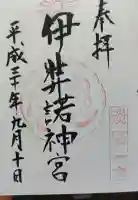 奉拝
伊弉諾神宮
平成三十年九月十日